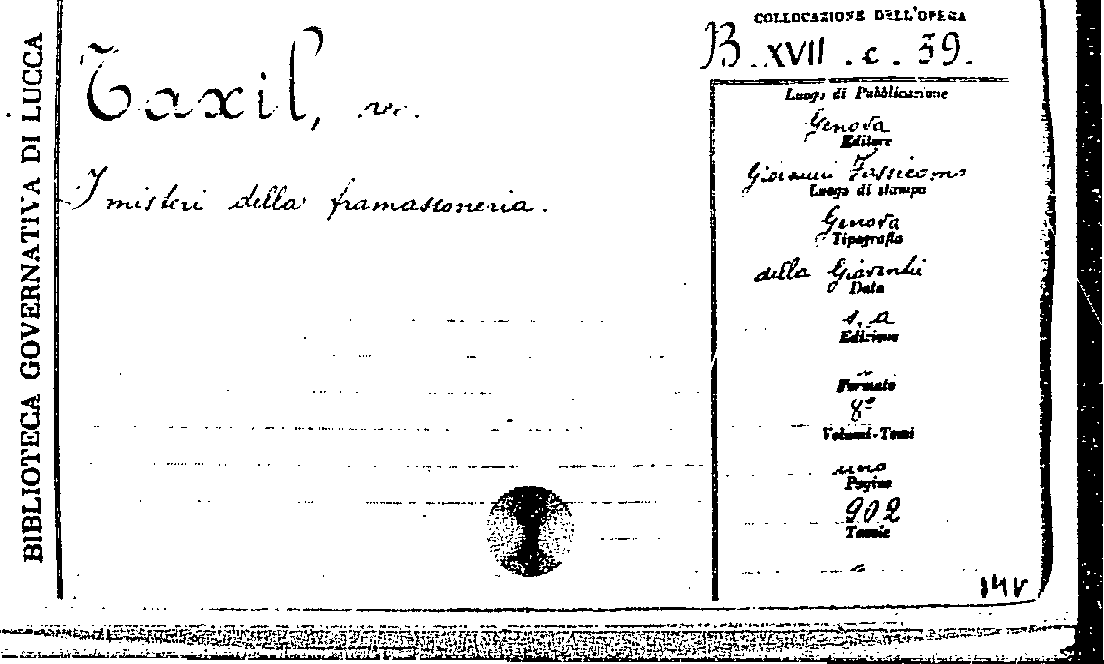 BIBLIOTECA GOVERNATIVA DI LUCCA
Taxil,
I misteri della framassoneria.
COLLOCAZIONE DELL'OPERA
B. XVII . c . 39.
Luogo di Pubblicazione
Genova
Editore
Giovanni Fassicomo
Luogo di stampa
Genova
Tipografia
della Gioventù
Data
s. a
Edizione
Formato
8º
Volumi-Tomi
uno
Pagine
902
Tavole